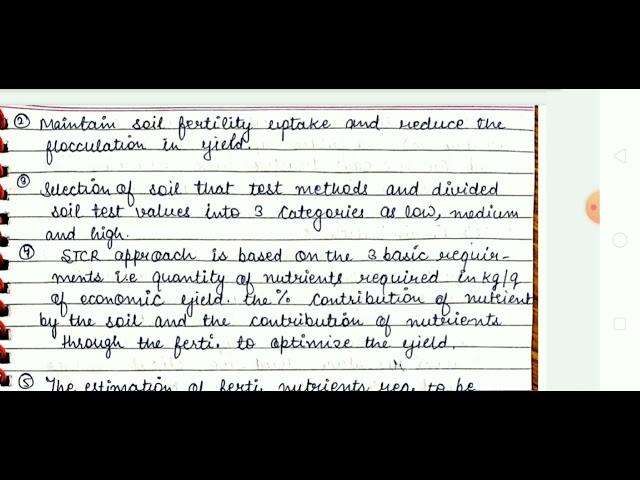 ② Maintain soil fertility uptake and reduce the
flocculation in yield.
③ Selection of soil that test methods and divided
soil test values into 3 categories as low, medium
and high.
④ STCR approach is based on the 3 basic requir-
ments i.e quantity of nutrients required in kg/q
of economic yield. the % contribution of nutrient
by the soil and the contribution of nutrients
through the ferti. to optimize the yield.
⑤ The estimation of ferti. nutrients req. to be